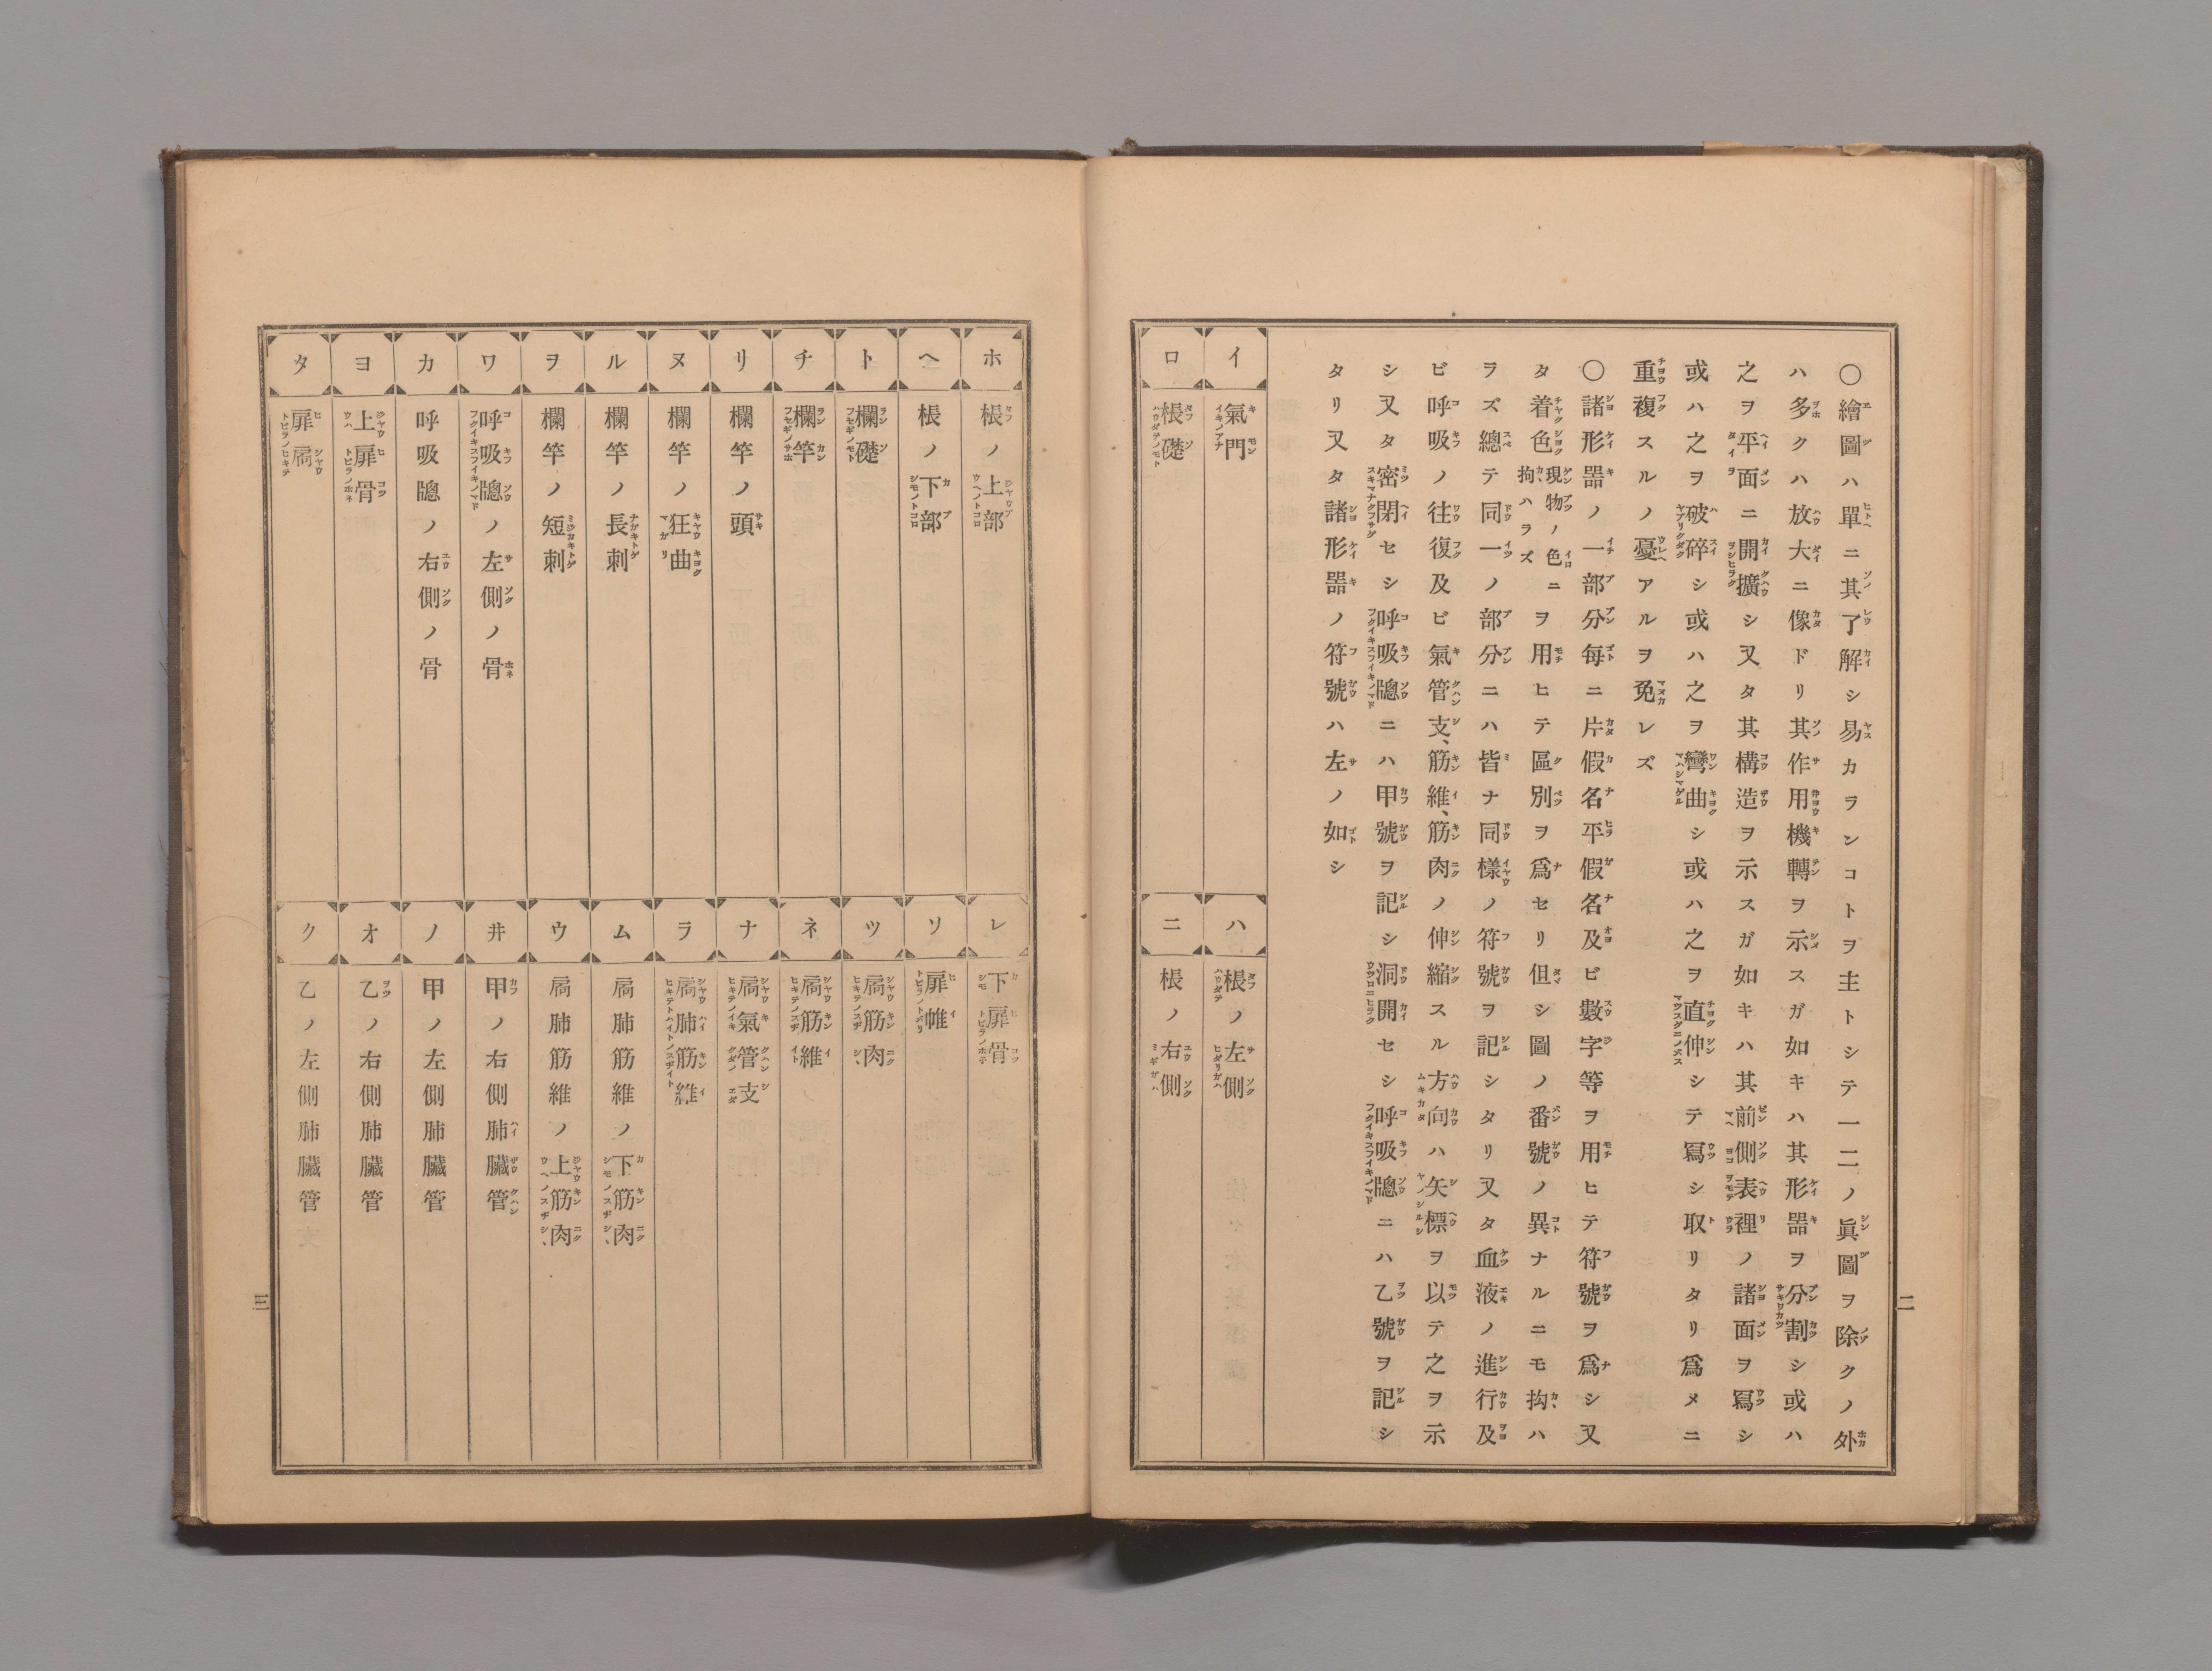 二
〇繪圖ハ單ニ其了解シ易カランコトヲ主トシテ一二ノ眞圖ヲ除クノ外
ハ多クハ放大ニ像ドリ其作用機轉ヲ示スガ如キハ其形器ヲ分割シ或ハ
之ヲ平面ニ開擴シ又タ其構造ヲ示スガ如キハ其前側表裡ノ諸面ヲ寫シ
或ハ之ヲ破碎シ或ハ之ヲ彎曲シ或ハ之ヲ直伸シテ寫シ取リタリ爲メニ
重複スルノ憂アルヲ免レズ
〇諸形噐ノ一部分每ニ片假名平假名及ビ數字等ヲ用ヒテ符號ヲ爲シ又
タ着色現物ノ色ニ拘ハラズヲ用ヒテ區別ヲ爲セリ但シ圖ノ番號ノ異ナルニモ拘ハ
ヲズ總テ同一ノ部分ニハ皆ナ同樣ノ符號ヲ記シタリ又タ血液ノ進行及
ビ呼吸ノ往復及ビ氣管支、筋維、筋肉ノ伸縮スル方向ハ矢標ヲ以テ之ヲ示
シ又タ密閉セシ呼吸牕ニハ甲號ヲ記シ洞開セシ呼吸牕ニハ乙號ヲ記シ
タリ又タ諸形噐ノ符號ハ左ノ如シ
イ 氣門
ロ 棖礎
ハ 棖ノ左側
ニ 棖ノ右側
ホ 棖ノ上部
ヘ 棖ノ下部
ト 欄礎
チ 欄竿
リ 欄竿ノ頭
ヌ 欄竿ノ狂曲
ル 欄竿ノ長刺
ヲ 欄竿ノ短刺
ワ 呼吸牕ノ左側ノ骨
カ 呼吸牕ノ右側ノ骨
ヨ 上扉骨
タ 扉扄
レ 下扉骨
ソ 扉帷
ツ 扄筋肉
ネ 扄筋維
ナ 扄氣管支
ラ 扄肺筋維
ム 扄肺筋維ノ下筋肉
ウ 扄肺筋維ノ上筋肉
井 甲ノ右側肺臟管
ノ 甲ノ左側肺臟管
オ 乙ノ右側肺臟管
ク 乙ノ左側肺臟管
三